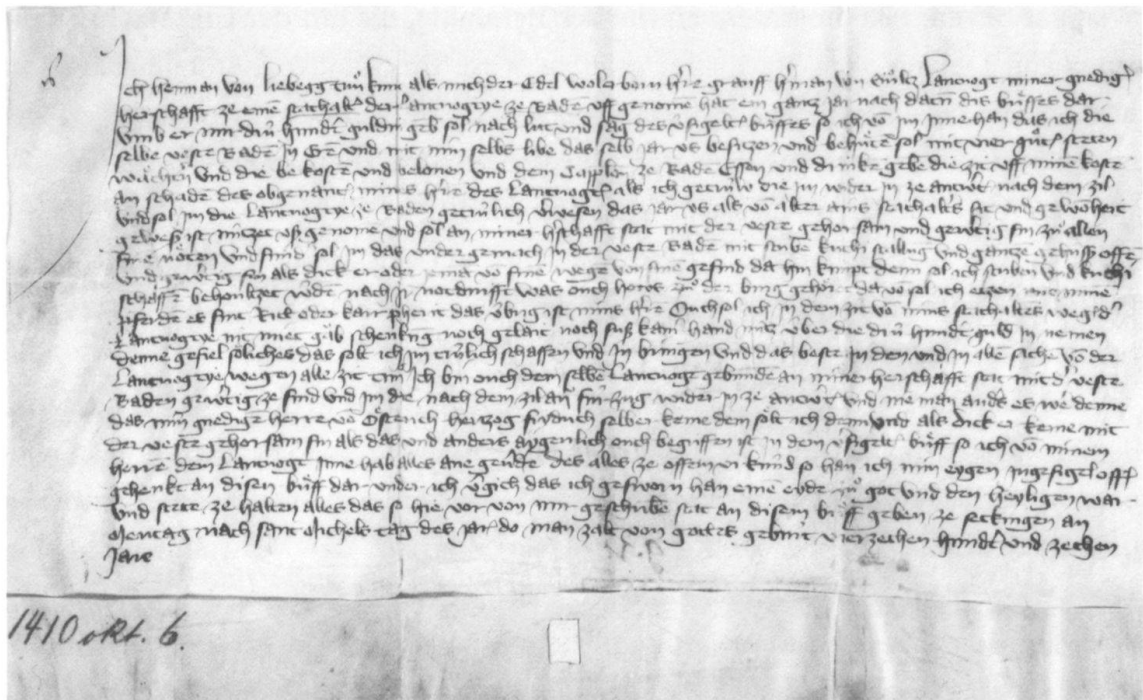 Ich Henman von liebegg tun kunt als mich der Edel wolerborn h're grauff h'man von Sultz Lantvogt miner gnedig'
herschafft ze einem stathalt' der lantvogtye ze Baden uff genomen hat ein gantz jar nach datu dis brieffes dar
umb er mir drü hundert guldin geben sol nach lut und sag des v'sigelt' brieffes so ich von im inne han das ich die
selbe vesti Baden in Ere und mit min selbs libe das selb jar us besitzen und behüten sol mit vier steten
wachtern und die bekosten und belonen und dem Capplan ze Baden Essen und drinken geben die zit uff minen kosten
an schaden des obgenant' mins h're des Lantvogt' als ich getrüw die im wider in ze antwurt' nach dem zil
und sol im die Lantvogtye ze Baden getrülich v'wesen das jar us als von alter ains stathalt's sit und gewonheit
gewesen ist nützet us genomen und sol an miner h'schafft stat mit der vesti gehorsam und gewertig sin zu allen
sinen nöten und sind sol im das under gemach in der vesti Baden mit stuben kuchi stallung und gantzem offen
und gewertig sin als dick er oder jeman von sinen wegen von sinem gesind da hin kumpt denn sol ich stuben und kuchi
schaffen behöultzet werden nach ir notdurfft was ouch höws zu der burg gehört da von sol ich etzen mit minen
pferden es sint Rick oder das übrig ist mins h're Ouch sol ich in dem zit von mins stathalters wegen d'
Lantvogtye nit miet gäb schenkung noch gelait noch suss kain hand nütz über die drü hundert guld in nemen
denne gefiel söliches das solt ich im trülich schaffen und in bringen und das beste in den und in allen sachen von der
Lantvogtye wegen alle zit tun Ich bin ouch dem selben Lantvogt gebunden an miner herschafft stat mit d' vesti
Baden gewertig ze sind und im die nach dem zil an sumung wider in ze antwurt' und nieman anders es wer denne
das min gnediger herre von Österich hertzog fridrich selber keme dem sölt ich denn und als dick er keme mit
der vesti gehorsam sin als das und anders aygenlich ouch begriffen ist in dem v'sigelt' brieff so ich von minem
herren dem Lantvogt inne hab alles ane geverde des alles ze offem urkund so han ich min eygen ingesigel offe
gehenkt an disen brieff dar under ich v'gich das ich gesworn han einen eyde zu got und den heyligen war
und stete ze halten alles das so hie vor von mir geschriben stat an disem brieff geben ze seckingen an
Mentag nach sant Michels tag des jars do man zalt von gottes geburt vierzechen hundert und zechen
Jare
1410 okt. 6.